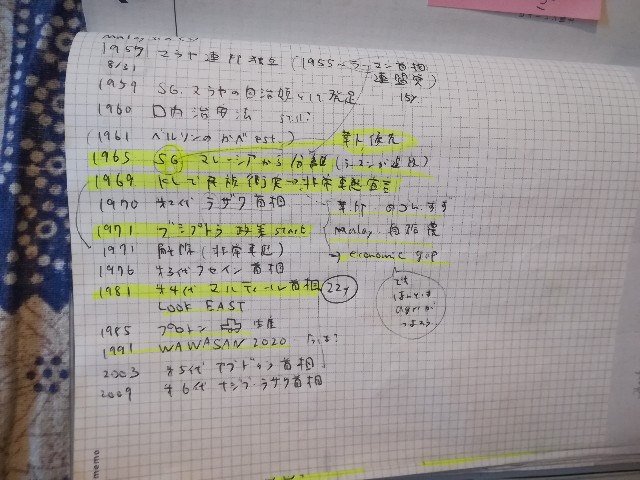 1957 マラヤ連邦独立 (1955~ラーマン首相
8/31 連盟党)
1959 SG. マラヤの自治領として発足 15y
1960 国内治安法
(1961 ベルリンのかべ est.)
華人優先
1965 SG マレーシアから分離 (ラーマンが追放)
1969 KLで民族衝突→非常事態宣言
1970 #2代 ラザク首相
1971 ブミプトラ政策 start
malay 自給農
→ economic gap
1971 解除 (非常事態)
1976 #3代フセイン首相
1981 #4代マハティール首相 22y
LOOK EAST
1985 プロトン 生産
1991 WAWASAN 2020
2003 #5代 アブドゥラ首相
2009 #6代 ナジブ・ラザク首相
memo